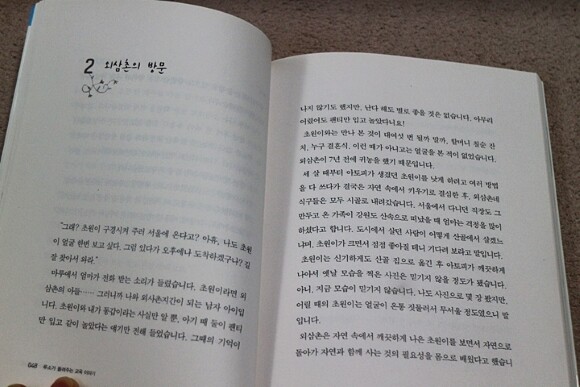 2 외삼촌의 방문
"그래? 초원이 구경시켜 주러 서울에 온다고? 아휴, 나도 초원
이 얼굴 한번 보고 싶다. 그럼 있다가 오후에나 도착하겠구나? 길
잘 찾아서 와라."
마루에서 엄마가 전화 받는 소리가 들렸습니다. 초원이라면 외
삼촌의 아들…… 그러니까 나와 외사촌지간이 되는 남자 아이입
니다. 초원이와 내가 동갑이라는 사실만 알 뿐, 아기 때 둘이 팬티
만 입고 같이 놀았다는 얘기만 전해 들었습니다. 그때의 기억이
048
나지 않기도 했지만, 난다 해도 별로 좋을 것은 없습니다. 아무리
어렸어도 팬티만 입고 놀았다니요!
초원이와는 만나 본 것이 대여섯 번 될까 말까, 할머니 칠순 잔
치, 누구 결혼식, 이런 때가 아니고는 얼굴을 본 적이 없었습니다.
외삼촌이 7년 전에 귀농을 했기 때문입니다.
세 살 때부터 아토피가 생겼던 초원이를 낫게 하려고 여러 방법
을 다 쓰다가 결국은 자연 속에서 키우기로 결심한 후, 외삼촌네
식구들은 모두 시골로 내려갔습니다. 서울에서 다니던 직장도 그
만두고 온 가족이 강원도 산속으로 떠났을 때 엄마는 걱정을 많이
하셨다고 합니다. 도시에서 살던 사람이 어떻게 산골에서 살겠느
냐며, 초원이가 크면서 점점 좋아질 테니 기다려 보라고 말입니다.
초원이는 신기하게도 산골 집으로 옮긴 후 아토피가 깨끗하게
나아서 옛날 모습을 찍은 사진은 믿기지 않을 정도가 됐습니다.
아니, 지금 모습이 믿기지 않습니다. 나도 사진으로 몇 장 봤지만,
어릴 때의 초원이는 얼굴이 온통 짓물러서 무서울 정도였으니 말
입니다.
외삼촌은 자연 속에서 깨끗하게 나은 초원이를 보면서 자연으로
돌아가 자연과 함께 사는 것의 필요성을 몸으로 배웠다고 했습니